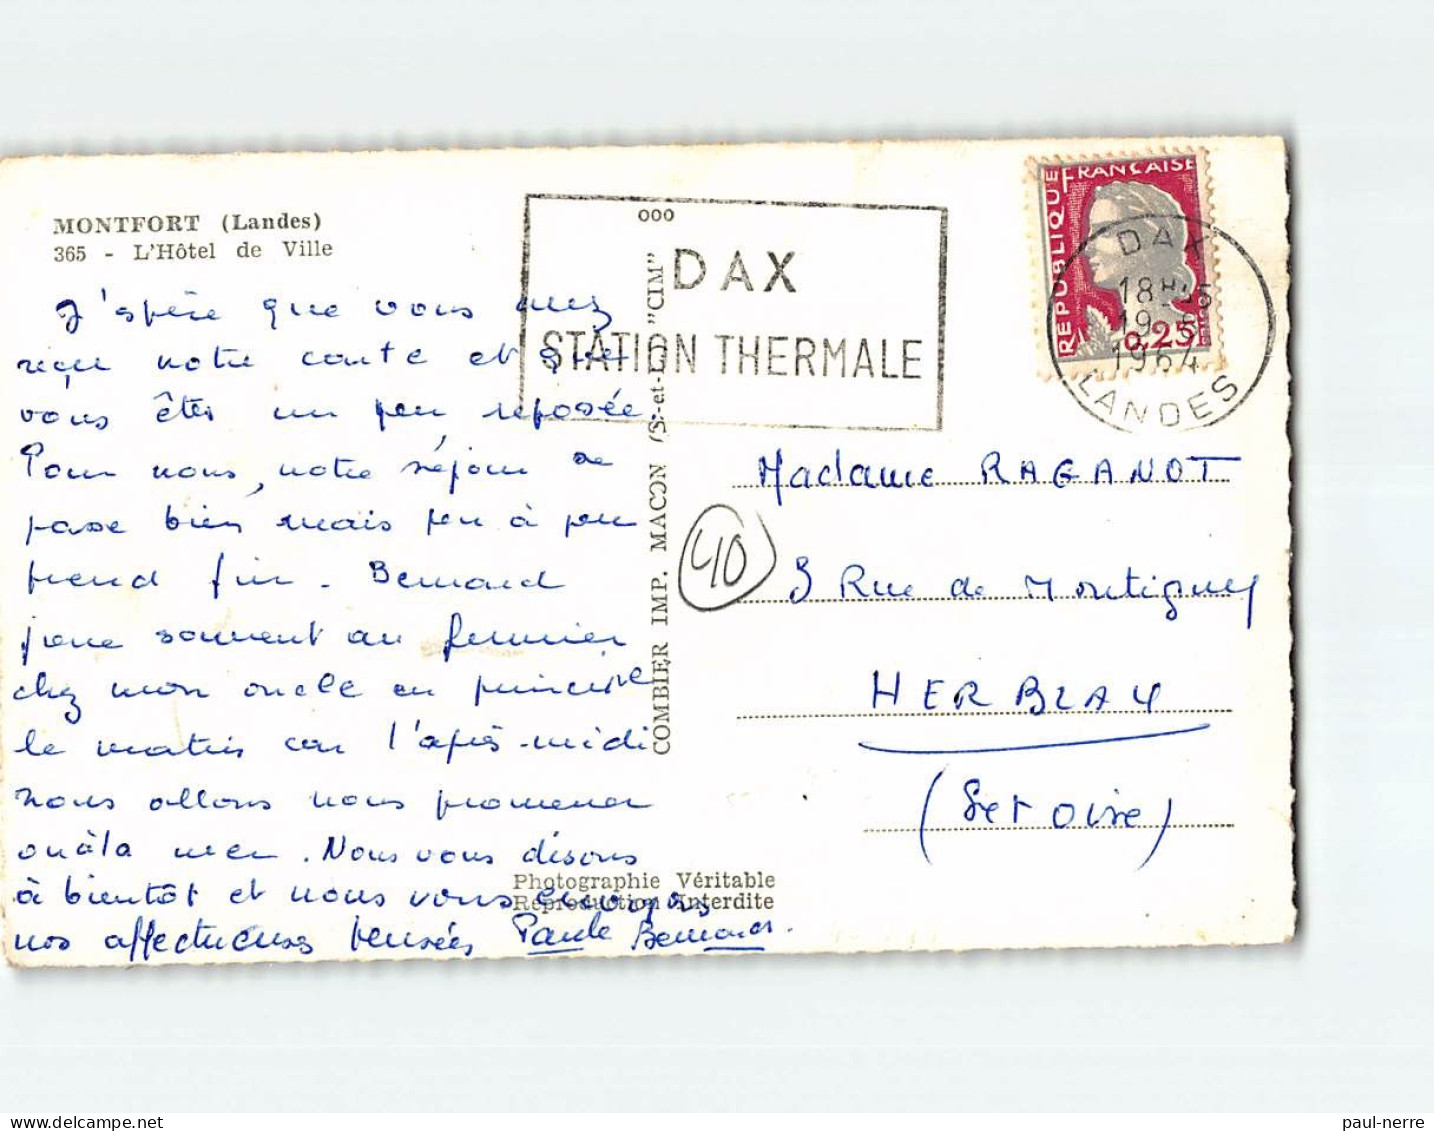 MONTFORT (Landes)
365 - L'Hôtel de Ville
J'espère que vous avez
reçu notre carte et que
vous êtes un peu reposée
Pour nous, notre séjour se
passe bien mais peu à peu
prend fin. Bernard
joue souvent au fermier
chez mon oncle en principe
le matin car l'après-midi
nous allons nous promener
ou à la mer. Nous vous disons
à bientôt et nous vous envoyons
nos affectueuses pensées Paule Bernard.
Photographie Véritable
Reproduction Interdite
COMBIER IMP. MACON (S.-et-L.) "CIM"
ooo
DAX
STATION THERMALE
REPUBLIQUE FRANCAISE
0,25
DAX
18H
19
1964
LANDES
40
Madame RAGANOT
3 Rue de Montigny
HERBLAY
(S et Oise)
paul-nerre